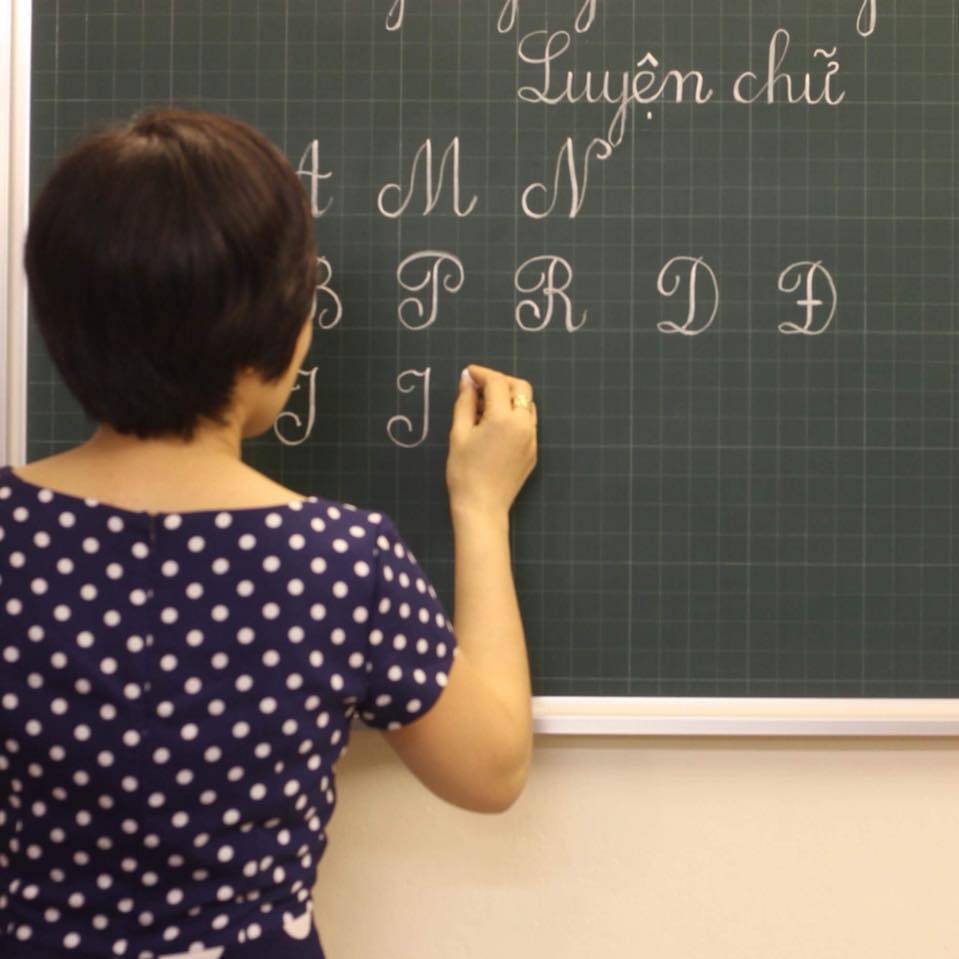 Luyện chữ
A M N
B P R D Đ
I I